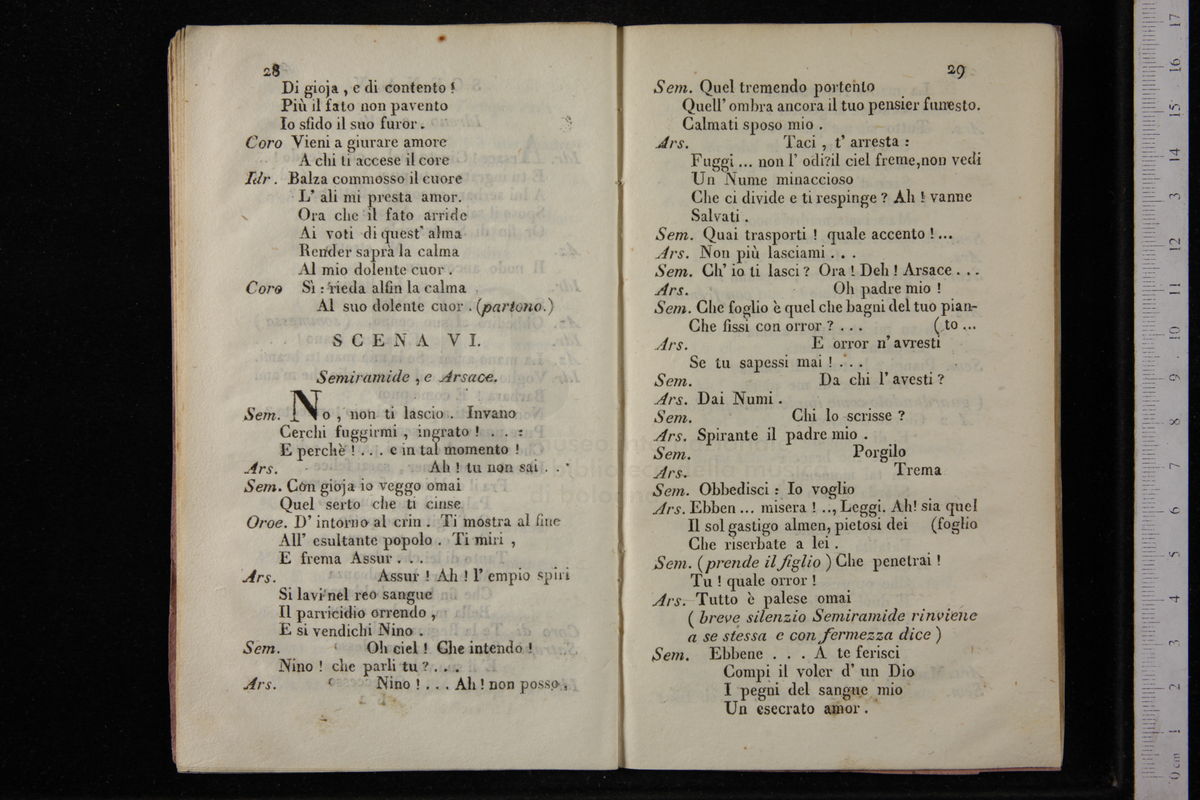 28
Di gioja , e di contento !
Più il fato non pavento
Io sfido il suo furor .
Coro Vieni a giurare amore
A chi ti accese il core
Idr . Balza commosso il cuore
L' ali mi presta amor.
Ora che il fato arride
Ai voti di quest' alma
Render saprà la calma
Al mio dolente cuor .
Coro Sì : rieda alfin la calma
Al suo dolente cuor . (partono.)
SCENA VI.
Semiramide , e Arsace.
Sem. No , non ti lascio . Invano
Cerchi fuggirmi , ingrato ! . . :
E perchè ! . . . e in tal momento !
Ars. Ah ! tu non sai . . .
Sem. Con gioja io veggo omai
Quel serto che ti cinse
Oroe. D' intorno al crin . Ti mostra al fine
All' esultante popolo . Ti miri ,
E frema Assur . . .
Ars. Assur ! Ah ! l' empio spiri
Si lavi nel reo sangue
Il parricidio orrendo ,
E si vendichi Nino .
Sem. Oh ciel ! Che intendo !
Nino ! che parli tu ? . . .
Ars. Nino ! . . . Ah ! non posso ,
29
Sem. Quel tremendo portento
Quell' ombra ancora il tuo pensier funesto.
Calmati sposo mio .
Ars. Taci , t' arresta :
Fuggi ... non l' odi?il ciel freme,non vedi
Un Nume minaccioso
Che ci divide e ti respinge ? Ah ! vanne
Salvati .
Sem. Quai trasporti ! quale accento ! ...
Ars. Non più lasciami . . .
Sem. Ch' io ti lasci ? Ora ! Deh ! Arsace . . .
Ars. Oh padre mio !
Sem. Che foglio è quel che bagni del tuo pian-
Che fissi con orror ? . . . ( to ...
Ars. E orror n' avresti
Se tu sapessi mai ! . . .
Sem. Da chi l' avesti ?
Ars. Dai Numi .
Sem. Chi lo scrisse ?
Ars. Spirante il padre mio .
Sem. Porgilo
Ars. Trema
Sem. Obbedisci : Io voglio
Ars. Ebben ... misera ! .., Leggi. Ah! sia quel
Il sol gastigo almen, pietosi dei (foglio
Che riserbate a lei .
Sem. (prende il figlio ) Che penetrai !
Tu ! quale orror !
Ars. Tutto è palese omai
( breve silenzio Semiramide rinviene
a se stessa e con fermezza dice )
Sem. Ebbene . . . A te ferisci
Compi il voler d' un Dio
I pegni del sangue mio
Un esecrato amor .
museo
biblioteca della musica
di bologna
0 cm 1 2 3 4 5 6 7 8 9 10 11 12 13 14 15 16 17